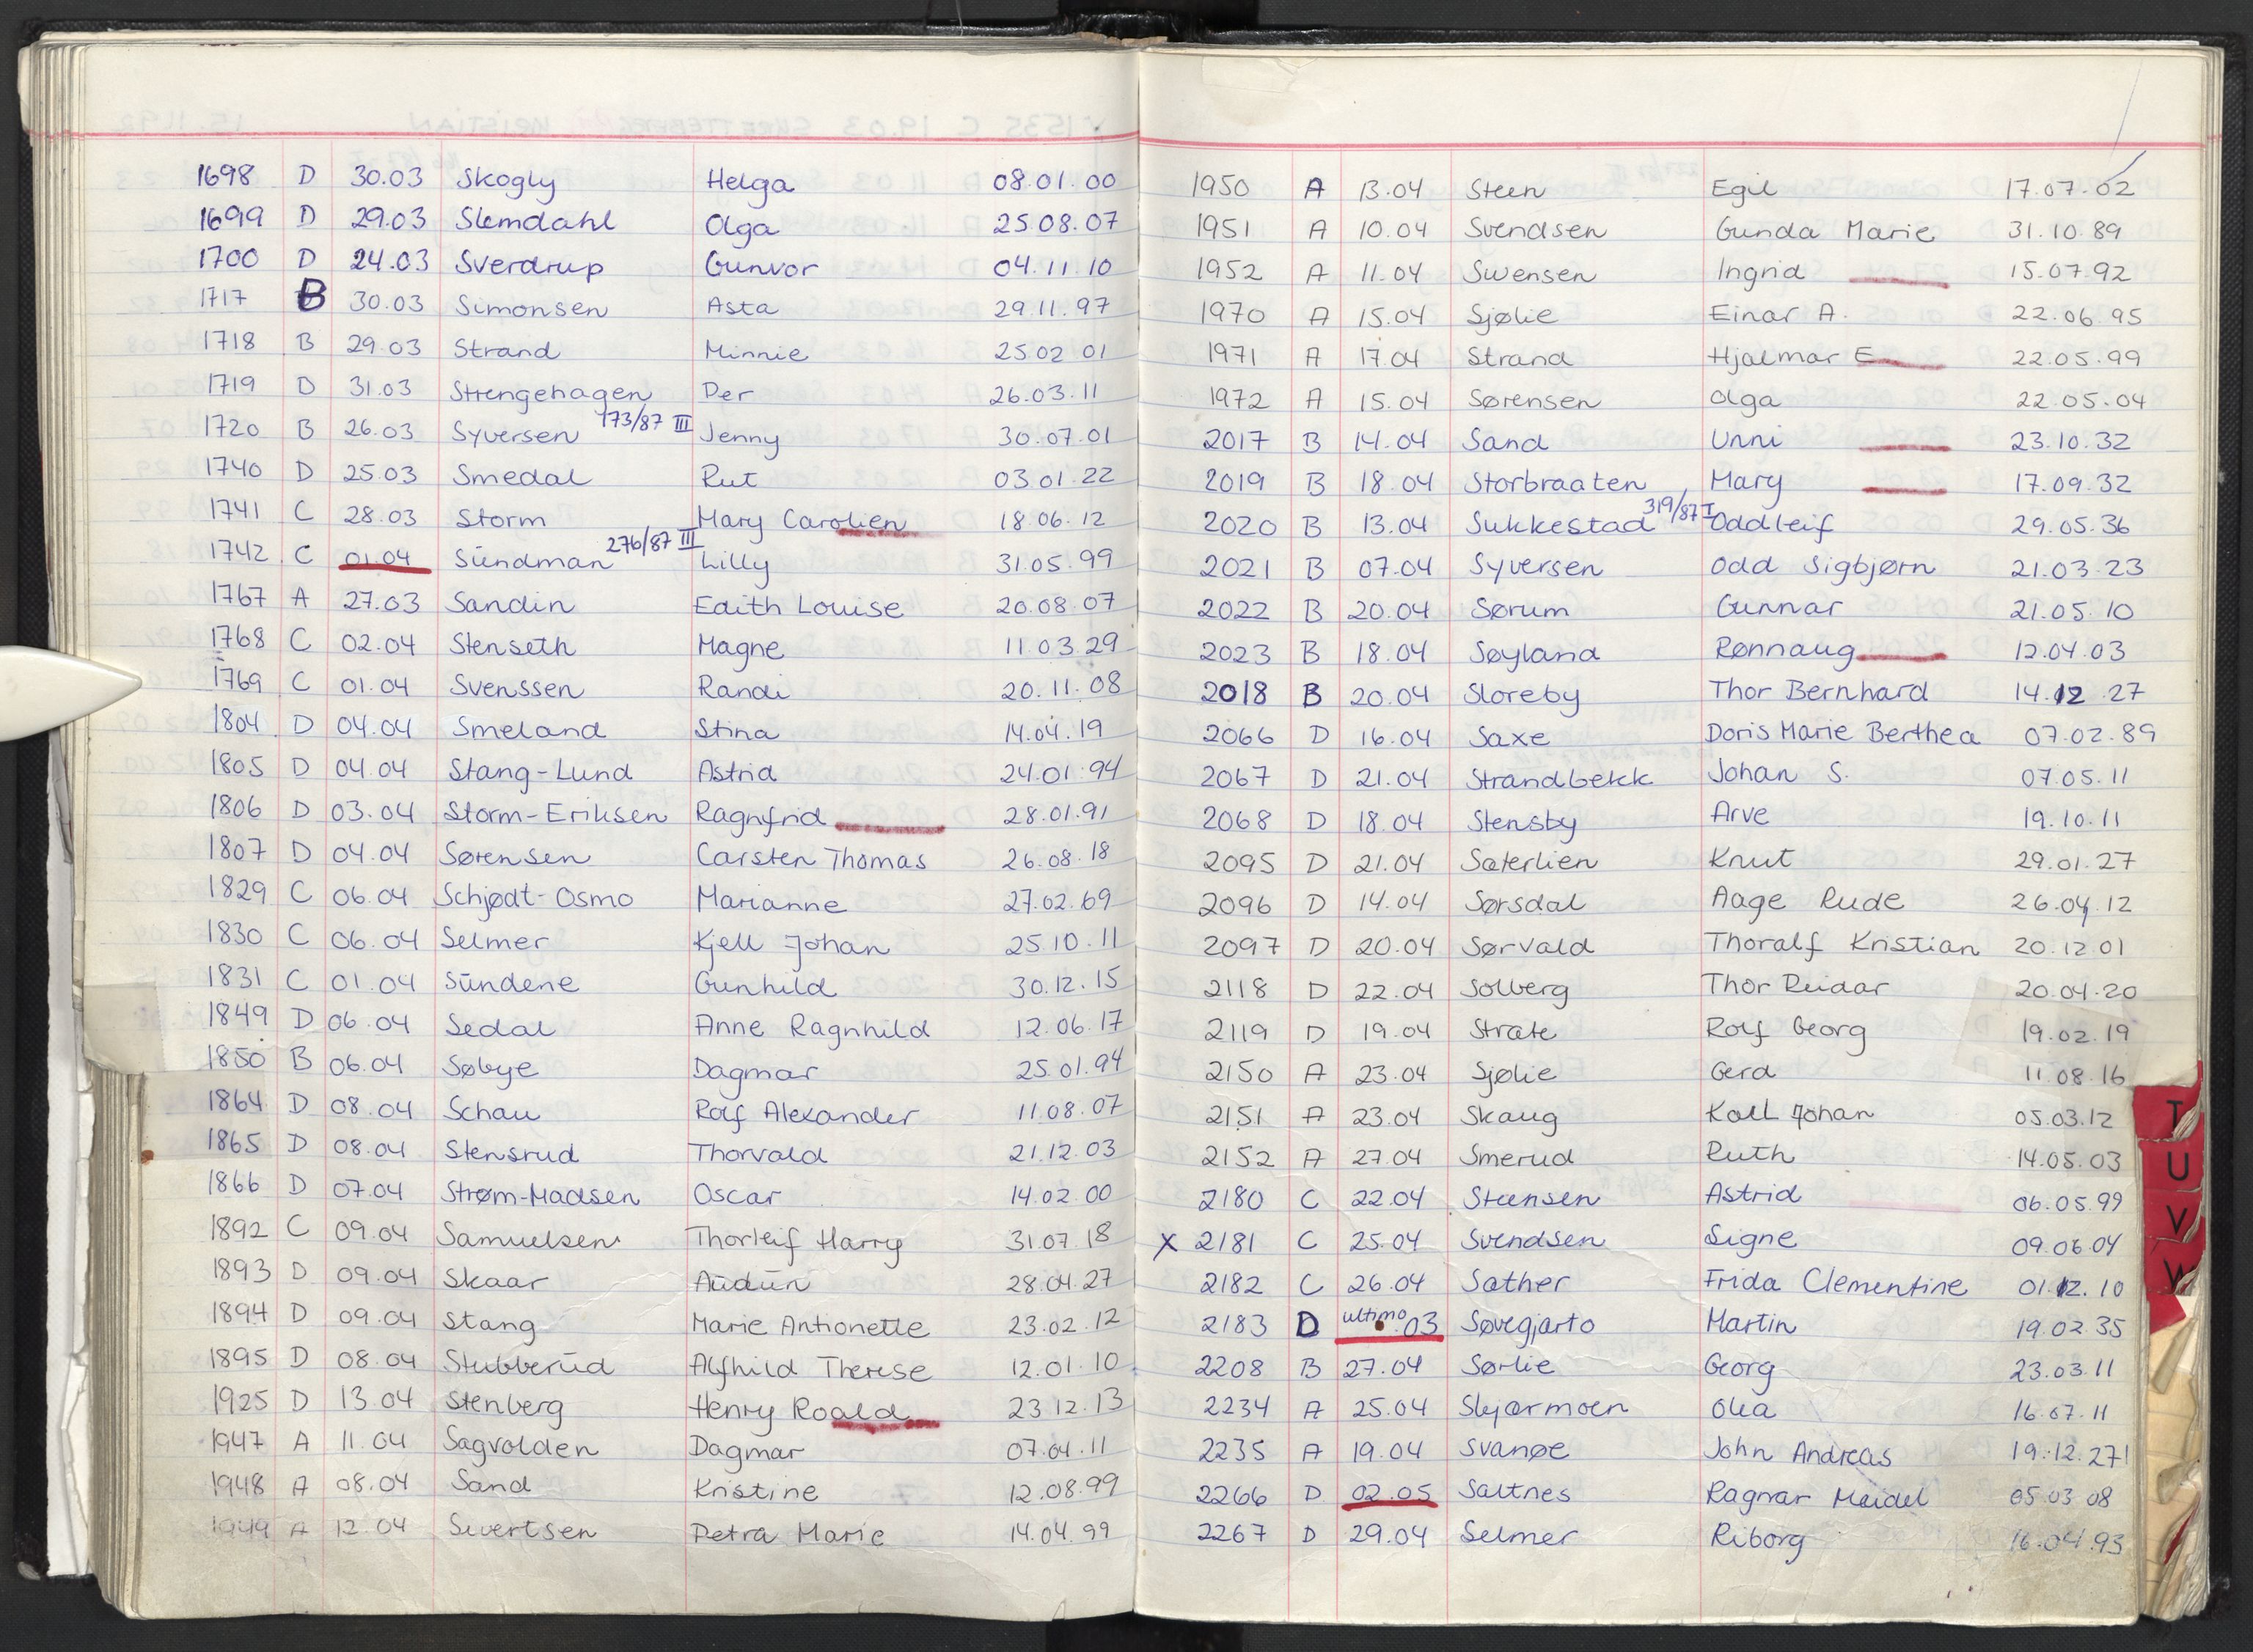 1698 D 30.03 Skogly Helga 08.01.00
1699 D 29.03 Slemdahl Olga 25.08.07
1700 D 24.03 Sverdrup Gunvor 04.11.10
1717 B 30.03 Simonsen Asta 29.11.97
1718 B 29.03 Strand Minnie 25.02 01
1719 D 31.03 Strengehagen Per 26.03.11
1720 B 26.03 Syversen 173/87 III Jenny 30.07.01
1740 D 25.03 Smedal Rut 03.01.22
1741 C 28.03 Storm Mary Carolien 18.06.12
1742 C 01.04 Sundman 276/87 III Lilly 31.05.99
1767 A 27.03 Sandin Edith Louise 20.08.07
1768 C 02.04 Stenseth Magne 11.03.29
1769 C 01.04 Svenssen Randi 20.11.08
1804 D 04.04 Smeland Stina 14.04.19
1805 D 04.04 Stang-Lund Astrid 24.01.94
1806 D 03.04 Storm-Eriksen Ragnfrid 28.01.91
1807 D 04.04 Sørensen Carsten Thomas 26.08.18
1829 C 06.04 Schjødt-Osmo Marianne 27.02.69
1830 C 06.04 Selmer Kjell Johan 25.10.11
1831 C 01.04 Sundene Gunhild 30.12.15
1849 D 06.04 Sedal Anne Ragnhild 12.06.17
1850 B 06.04 Søbye Dagmar 25.01.94
1864 D 08.04 Schau Rolf Alexander 11.08.07
1865 D 08.04 Stensrud Thorvald 21.12.03
1866 D 07.04 Strøm-Madsen Oscar 14.02.00
1892 C 09.04 Samuelsen Thorleif Harry 31.07.18
1893 D 09.04 Skaar Audun 28.04.27
1894 D 09.04 Stang Marie Antionette 23.02.12
1895 D 08.04 Stubberud Alfhild Therese 12.01.10
1925 D 13.04 Stenberg Henry Roald 23.12.13
1947 A 11.04 Sagvolden Dagmar 07.04.11
1948 A 08.04 Sand Kristine 12.08.99
1949 A 12.04 Sivertsen Petra Marie 14.04.99
1950 A 13.04 Steen Egil 17.07.02
1951 A 10.04 Svendsen Gunda Marie 31.10.89
1952 A 11.04 Swensen Ingrid 15.07.92
1970 A 15.04 Sjølie Einar A. 22.06.95
1971 A 17.04 Strand Hjalmar E 22.05.99
1972 A 15.04 Sørensen Olga 22.05.04
2017 B 14.04 Sand Unni 23.10.32
2019 B 18.04 Storbraaten Mary 17.09.32
2020 B 13.04 Sukkestad 319/87 I Oddleif 29.05.36
2021 B 07.04 Syversen Odd Sigbjørn 21.03.23
2022 B 20.04 Sørum Gunnar 21.05.10
2023 B 18.04 Søyland Rønnaug 12.04.03
2018 B 20.04 Sloreby Thor Bernhard 14.12.27
2066 D 16.04 Saxe Doris Marie Berthea 07.02.89
2067 D 21.04 Strandbekk Johan S. 07.05.11
2068 D 18.04 Stensby Arve 19.10.11
2095 D 21.04 Sæterlien Knut 29.01.27
2096 D 14.04 Sørsdal Aage Rude 26.04.12
2097 D 20.04 Sørvald Thoralf Kristian 20.12.01
2118 D 22.04 Solberg Thor Reidar 20.04.20
2119 D 19.04 Stræte Rolf Georg 19.02.19
2150 A 23.04 Sjølie Gerd 11.08.16
2151 A 23.04 Skaug Johan 05.03.12
2152 A 27.04 Smerud Ruth 14.05.03
2180 C 22.04 Steensen Astrid 06.05.99
x 2181 C 25.04 Svendsen Signe 09.06.04
2182 C 26.04 Sæther Frida Clementine 01.12.10
2183 D ultimo 03 Søvegjarto Martin 19.02.35
2208 B 27.04 Sørlie Georg 23.03.11
2234 A 25.04 Skjærmoen Olea 16.07.11
2235 A 19.04 Svanøe John Andreas 19.12.27
2266 D 02.05 Saltnes Ragnar Meidel 05.03.08
2267 D 29.04 Selmer Riborg 16.04.93
T
U
V
W